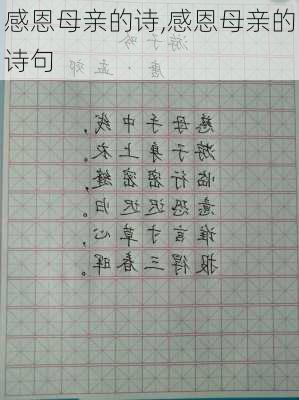 感恩母亲的诗,感恩母亲的
诗句
游子吟
唐·孟郊
慈母手中线,
游子身上衣。
临行密密缝,
意恐迟迟归。
谁言寸草心,
报得三春晖。